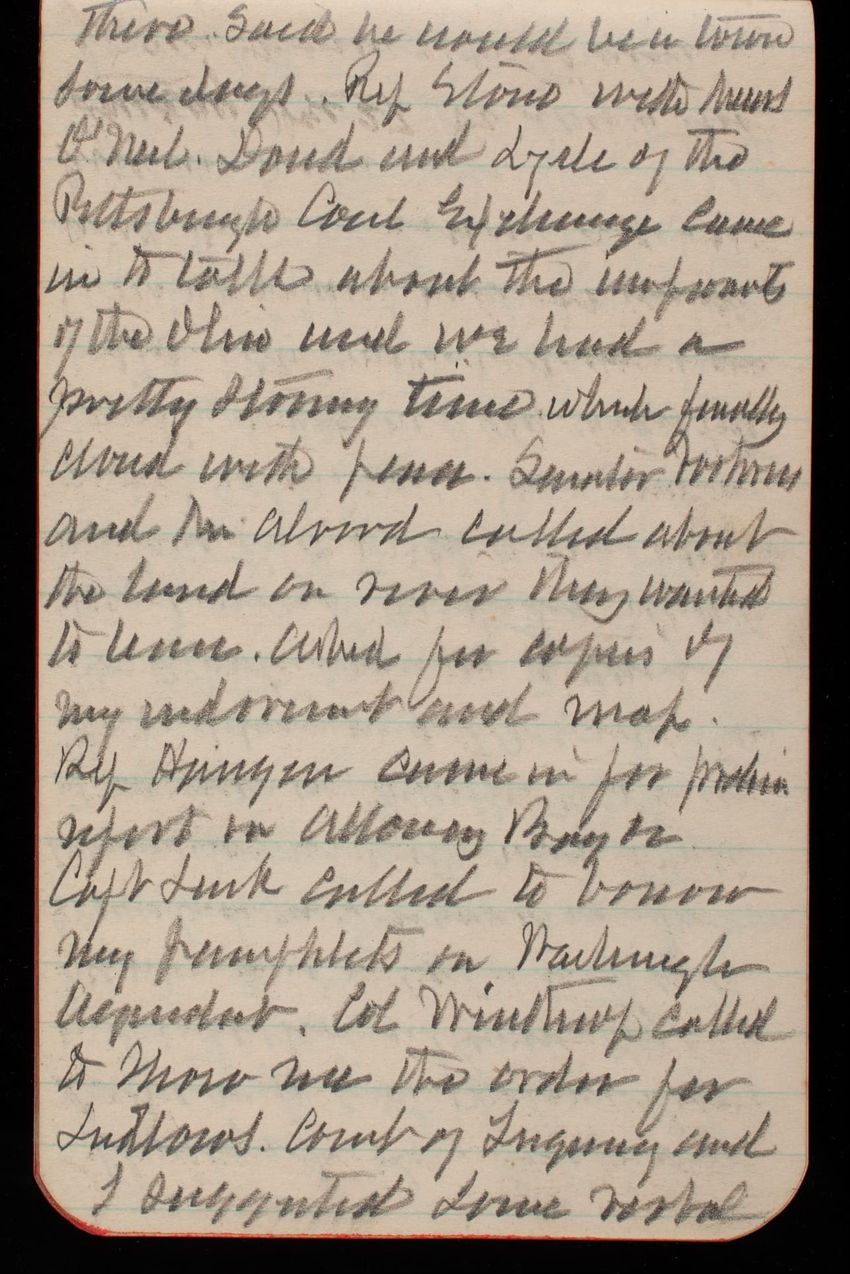 there. Said he would be in town
some days. Rep Stone with Mess
O'Neil. Doud and Lysle of the
Pittsburgh Coal Exchange came
in to talk about the improvts
of the Ohio and we had a
pretty stormy time which finally
closed with peace. Senator
and Mr Alvord called about
the land on river they wanted
to lease. Asked for copies of
my indorsement and map.
Rep came in for prelim
report on Alloway Bay or
Capt Lusk called to borrow
my pamphlets on Washington
Aqueduct. Col Winthrop called
to show me the order for
Ludlows. Court of Inquiry and
I suggested some verbal